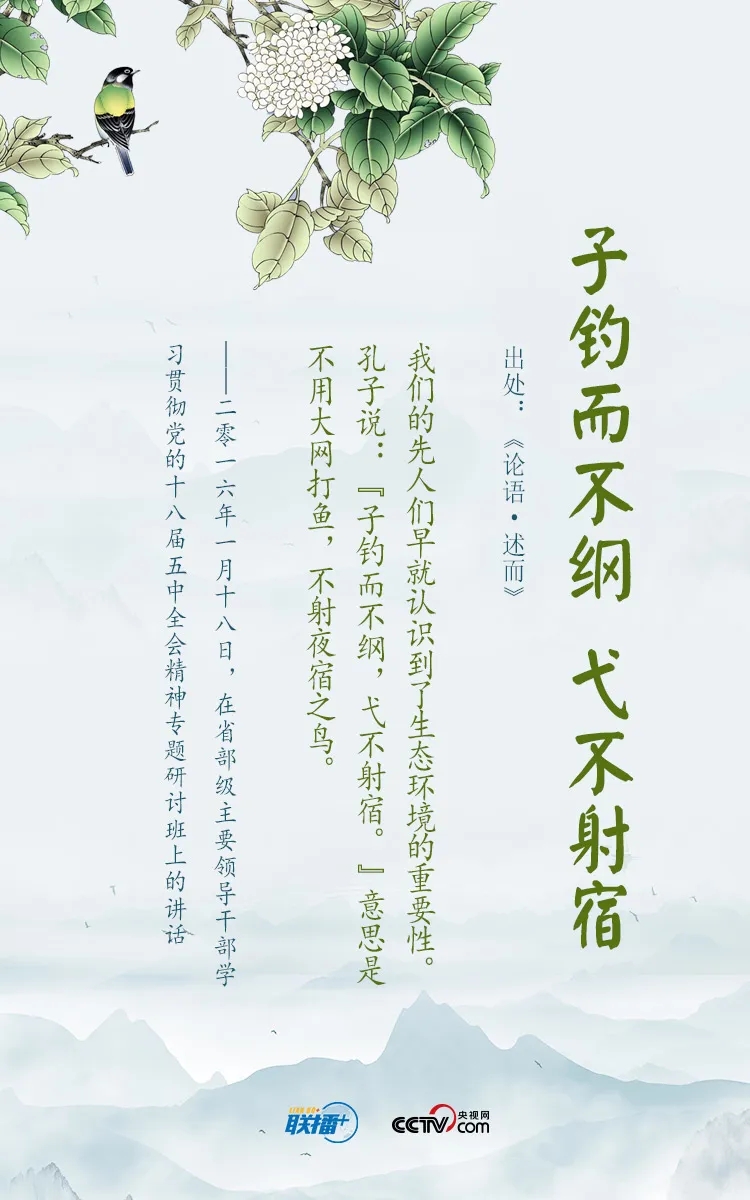 子钓而不纲 弋不射宿
出处：《论语·述而》
我们的先人们早就认识到了生态环境的重要性。
孔子说：『子钓而不纲，弋不射宿。』意思是
不用大网打鱼，不射夜宿之鸟。
——二零一六年一月十八日，在省部级主要领导干部学
习贯彻党的十八届五中全会精神专题研讨班上的讲话
联播+
CCTV.com 央视网